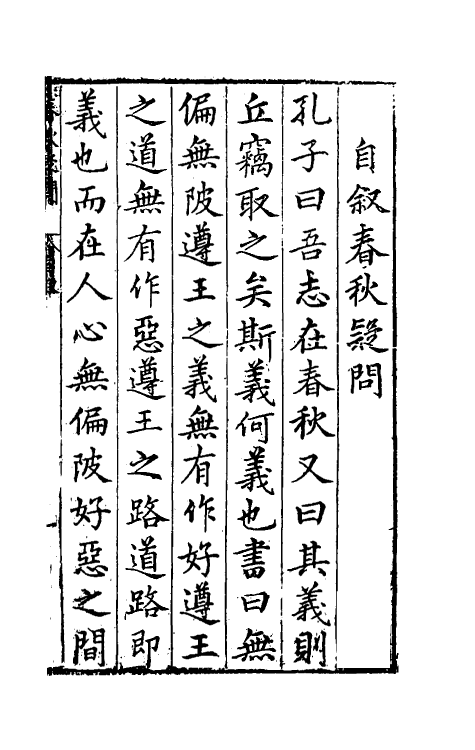 自叙春秋疑問
孔子曰吾志在春秋又曰其義則
丘竊取之矣斯義何義也書曰無
偏無陂遵王之義無有作好遵王
之道無有作惡遵王之路道路即
義也而在人心無偏陂好惡之間